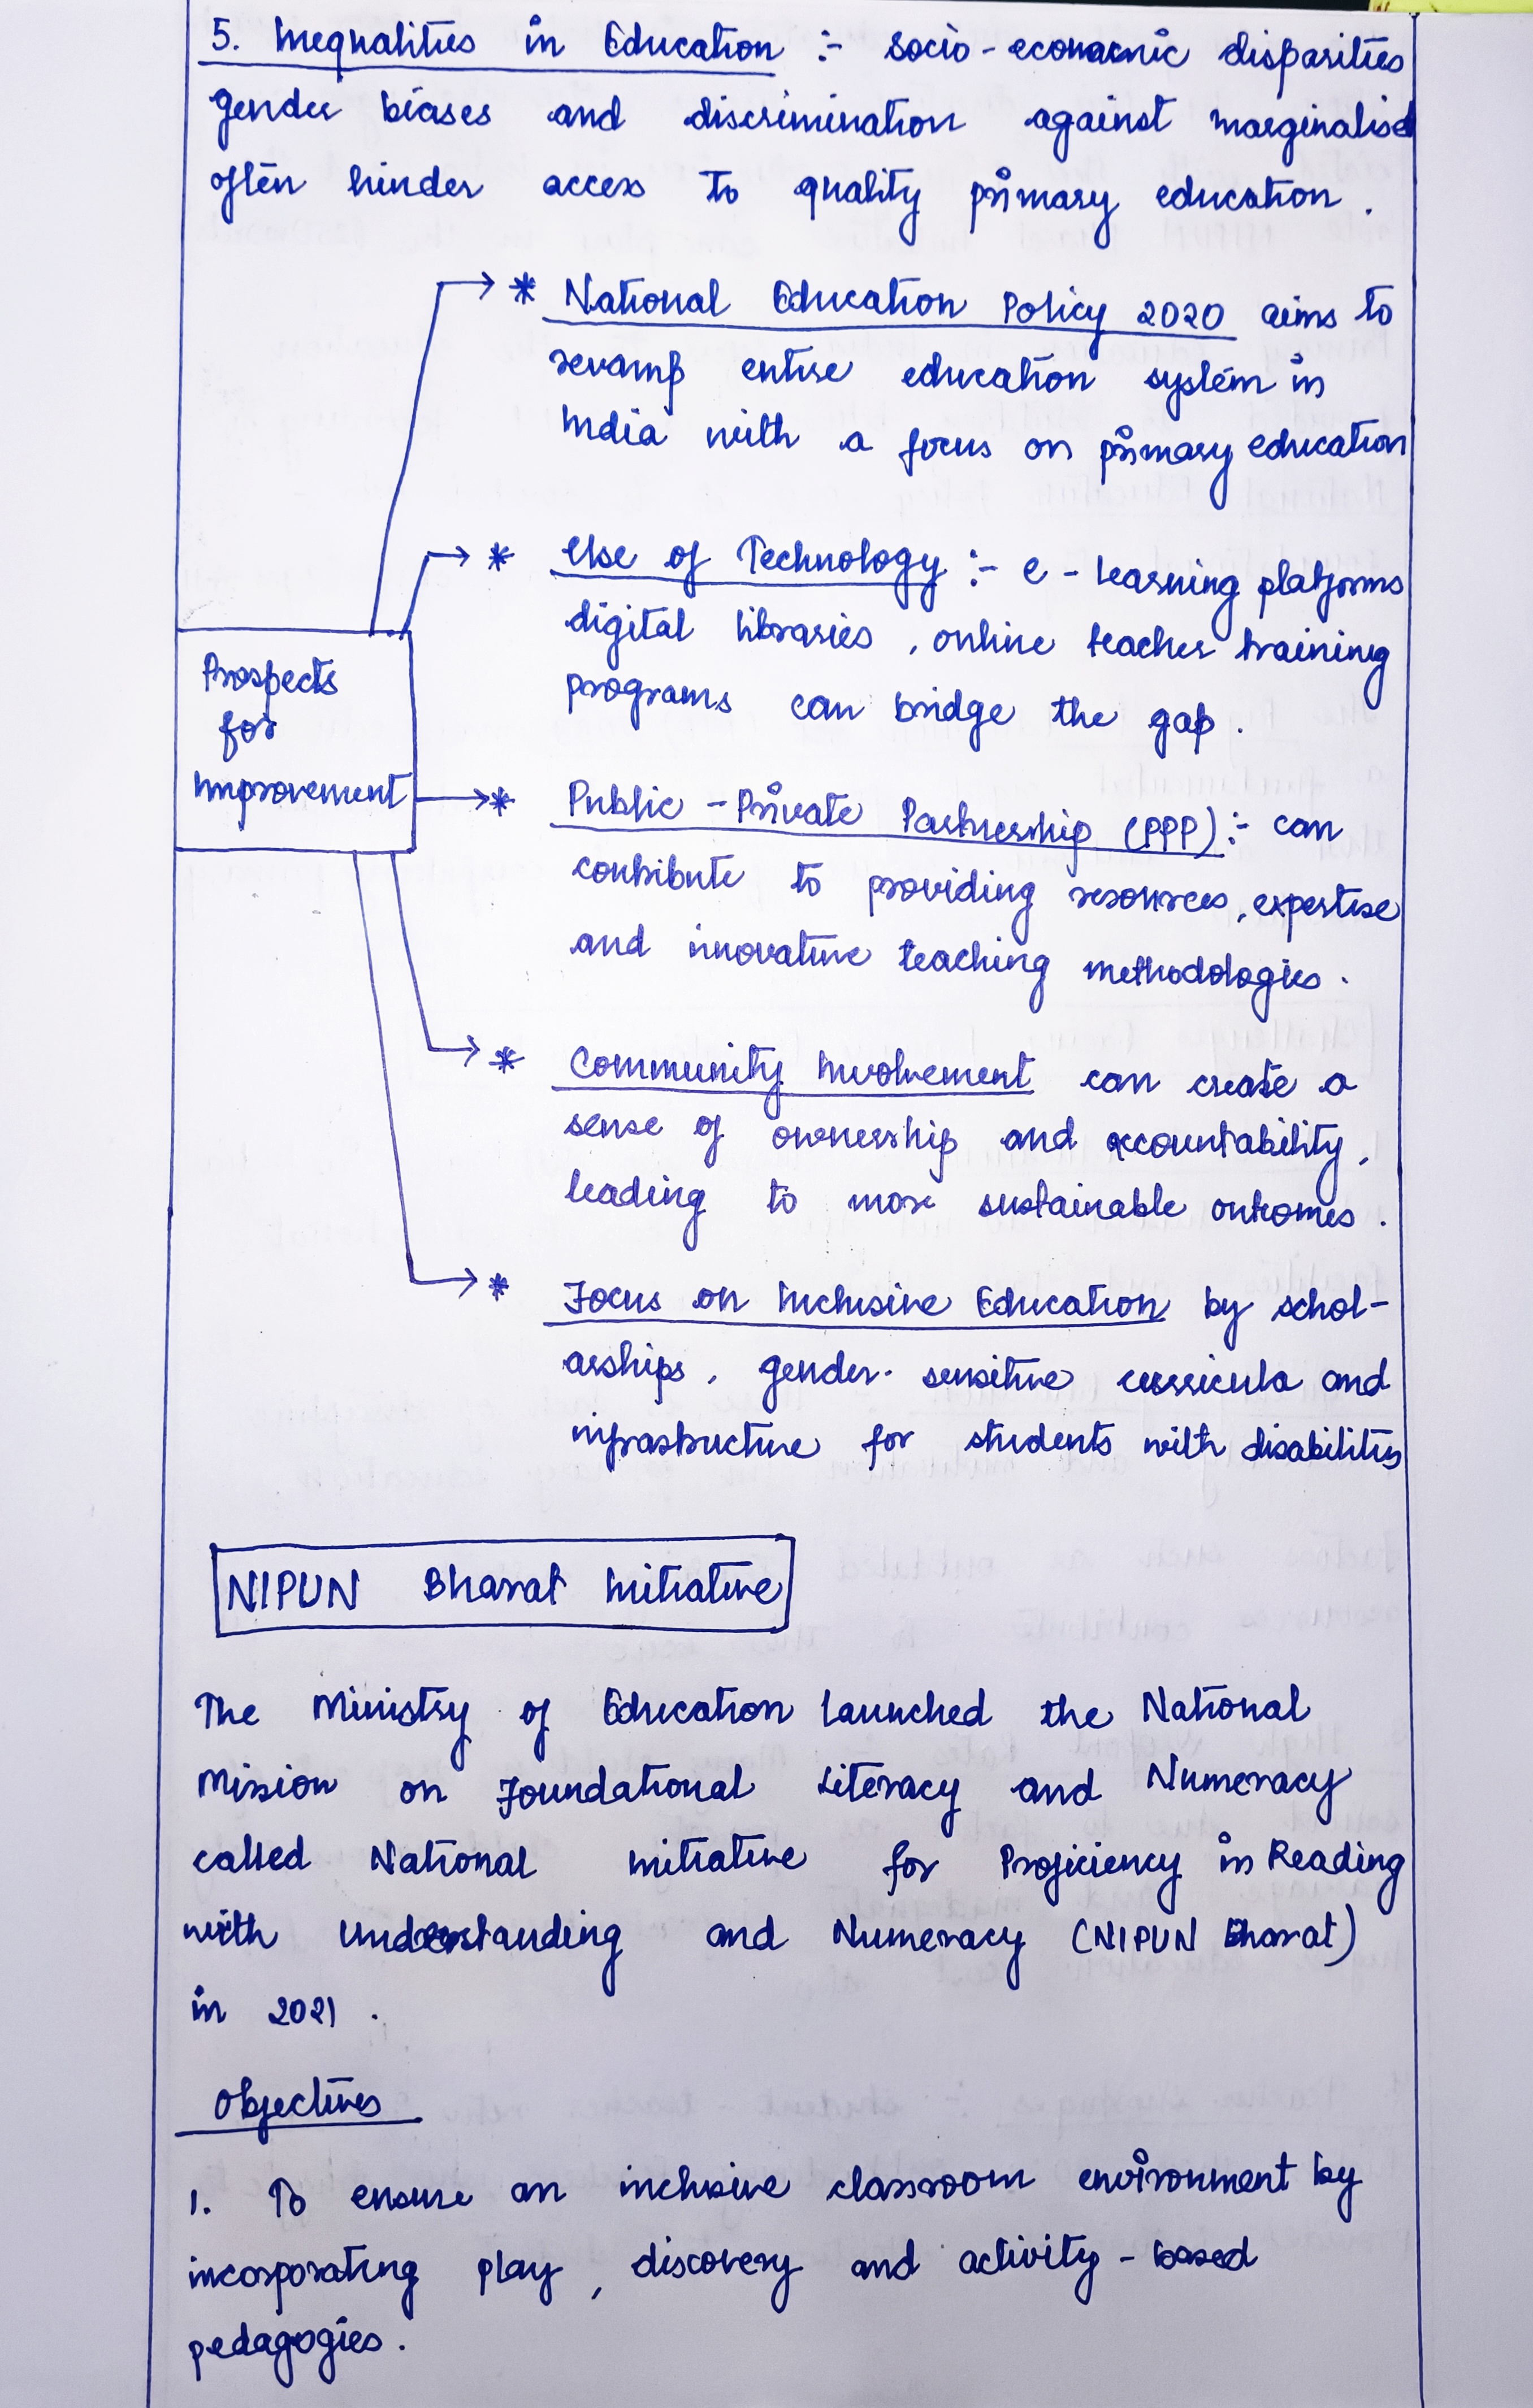 5. Inequalities in Education :- socio-economic disparities
gender biases and discrimination against marginalised
often hinder access to quality primary education.
* National Education Policy 2020 aims to
revamp entire education system in
India with a focus on primary education
* Use of Technology :- e-learning platforms
digital libraries, online teacher training
programs can bridge the gap.
Prospects
for
Improvement
* Public-Private Partnership (PPP):- can
contribute to providing resources, expertise
and innovative teaching methodologies.
* Community Involvement can create a
sense of ownership and accountability,
leading to more sustainable outcomes.
* Focus on Inclusive Education by schol-
arships, gender-sensitive curricula and
infrastructure for students with disabilities
NIPUN Bharat Initiative
The Ministry of Education launched the National
Mission on Foundational Literacy and Numeracy
called National initiative for Proficiency in Reading
with Understanding and Numeracy (NIPUN Bharat)
in 2021.
Objectives
1. To ensure an inclusive classroom environment by
incorporating play, discovery and activity-based
pedagogies.